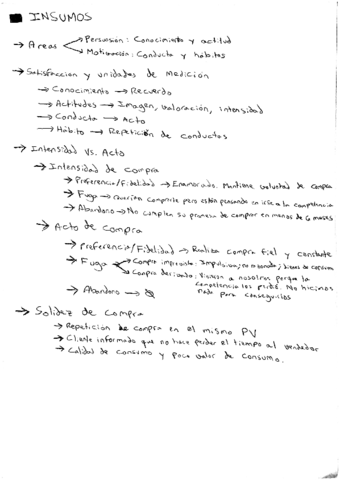 INSUMOS
→ Areas
Persuasión: Conocimiento y actitud
Motivación: Conducta y hábitos
→ Satisfaccion y unidades de medición
→ Conocimiento → Recuerdo
→ Actitudes → Imagen, valoración, intensidad
→ Conducta → Acto
→ Hábito → Repetición de conductas
→ Intensidad Vs. Acto
→ Intensidad de compra
→ Preferencia/Fidelidad → Enamorado. Mantiene voluntad de compra
→ Fuga → quieren comprarte pero están pensando en irse a la competencia
→ Abandono → No cumplen su promesa de compar en menos de 6 meses
→ Acto de Compra
→ Preferencia/Fidelidad → Realiza compra fiel y constante
→ Fuga
Compra imprevista: Impulsiva; no razonada; bienes de
Compra derivada: Vienen a nosotros porque la
competencia los perdió. No hicimos
nada para conseguirlos
→ Abandono →
→ Solidez de compra
→ Repetición de compra en el mismo PV
→ Cliente informado que no hace perder el tiempo al vendedor
→ Calidad de consumo y poco valor de consumo.